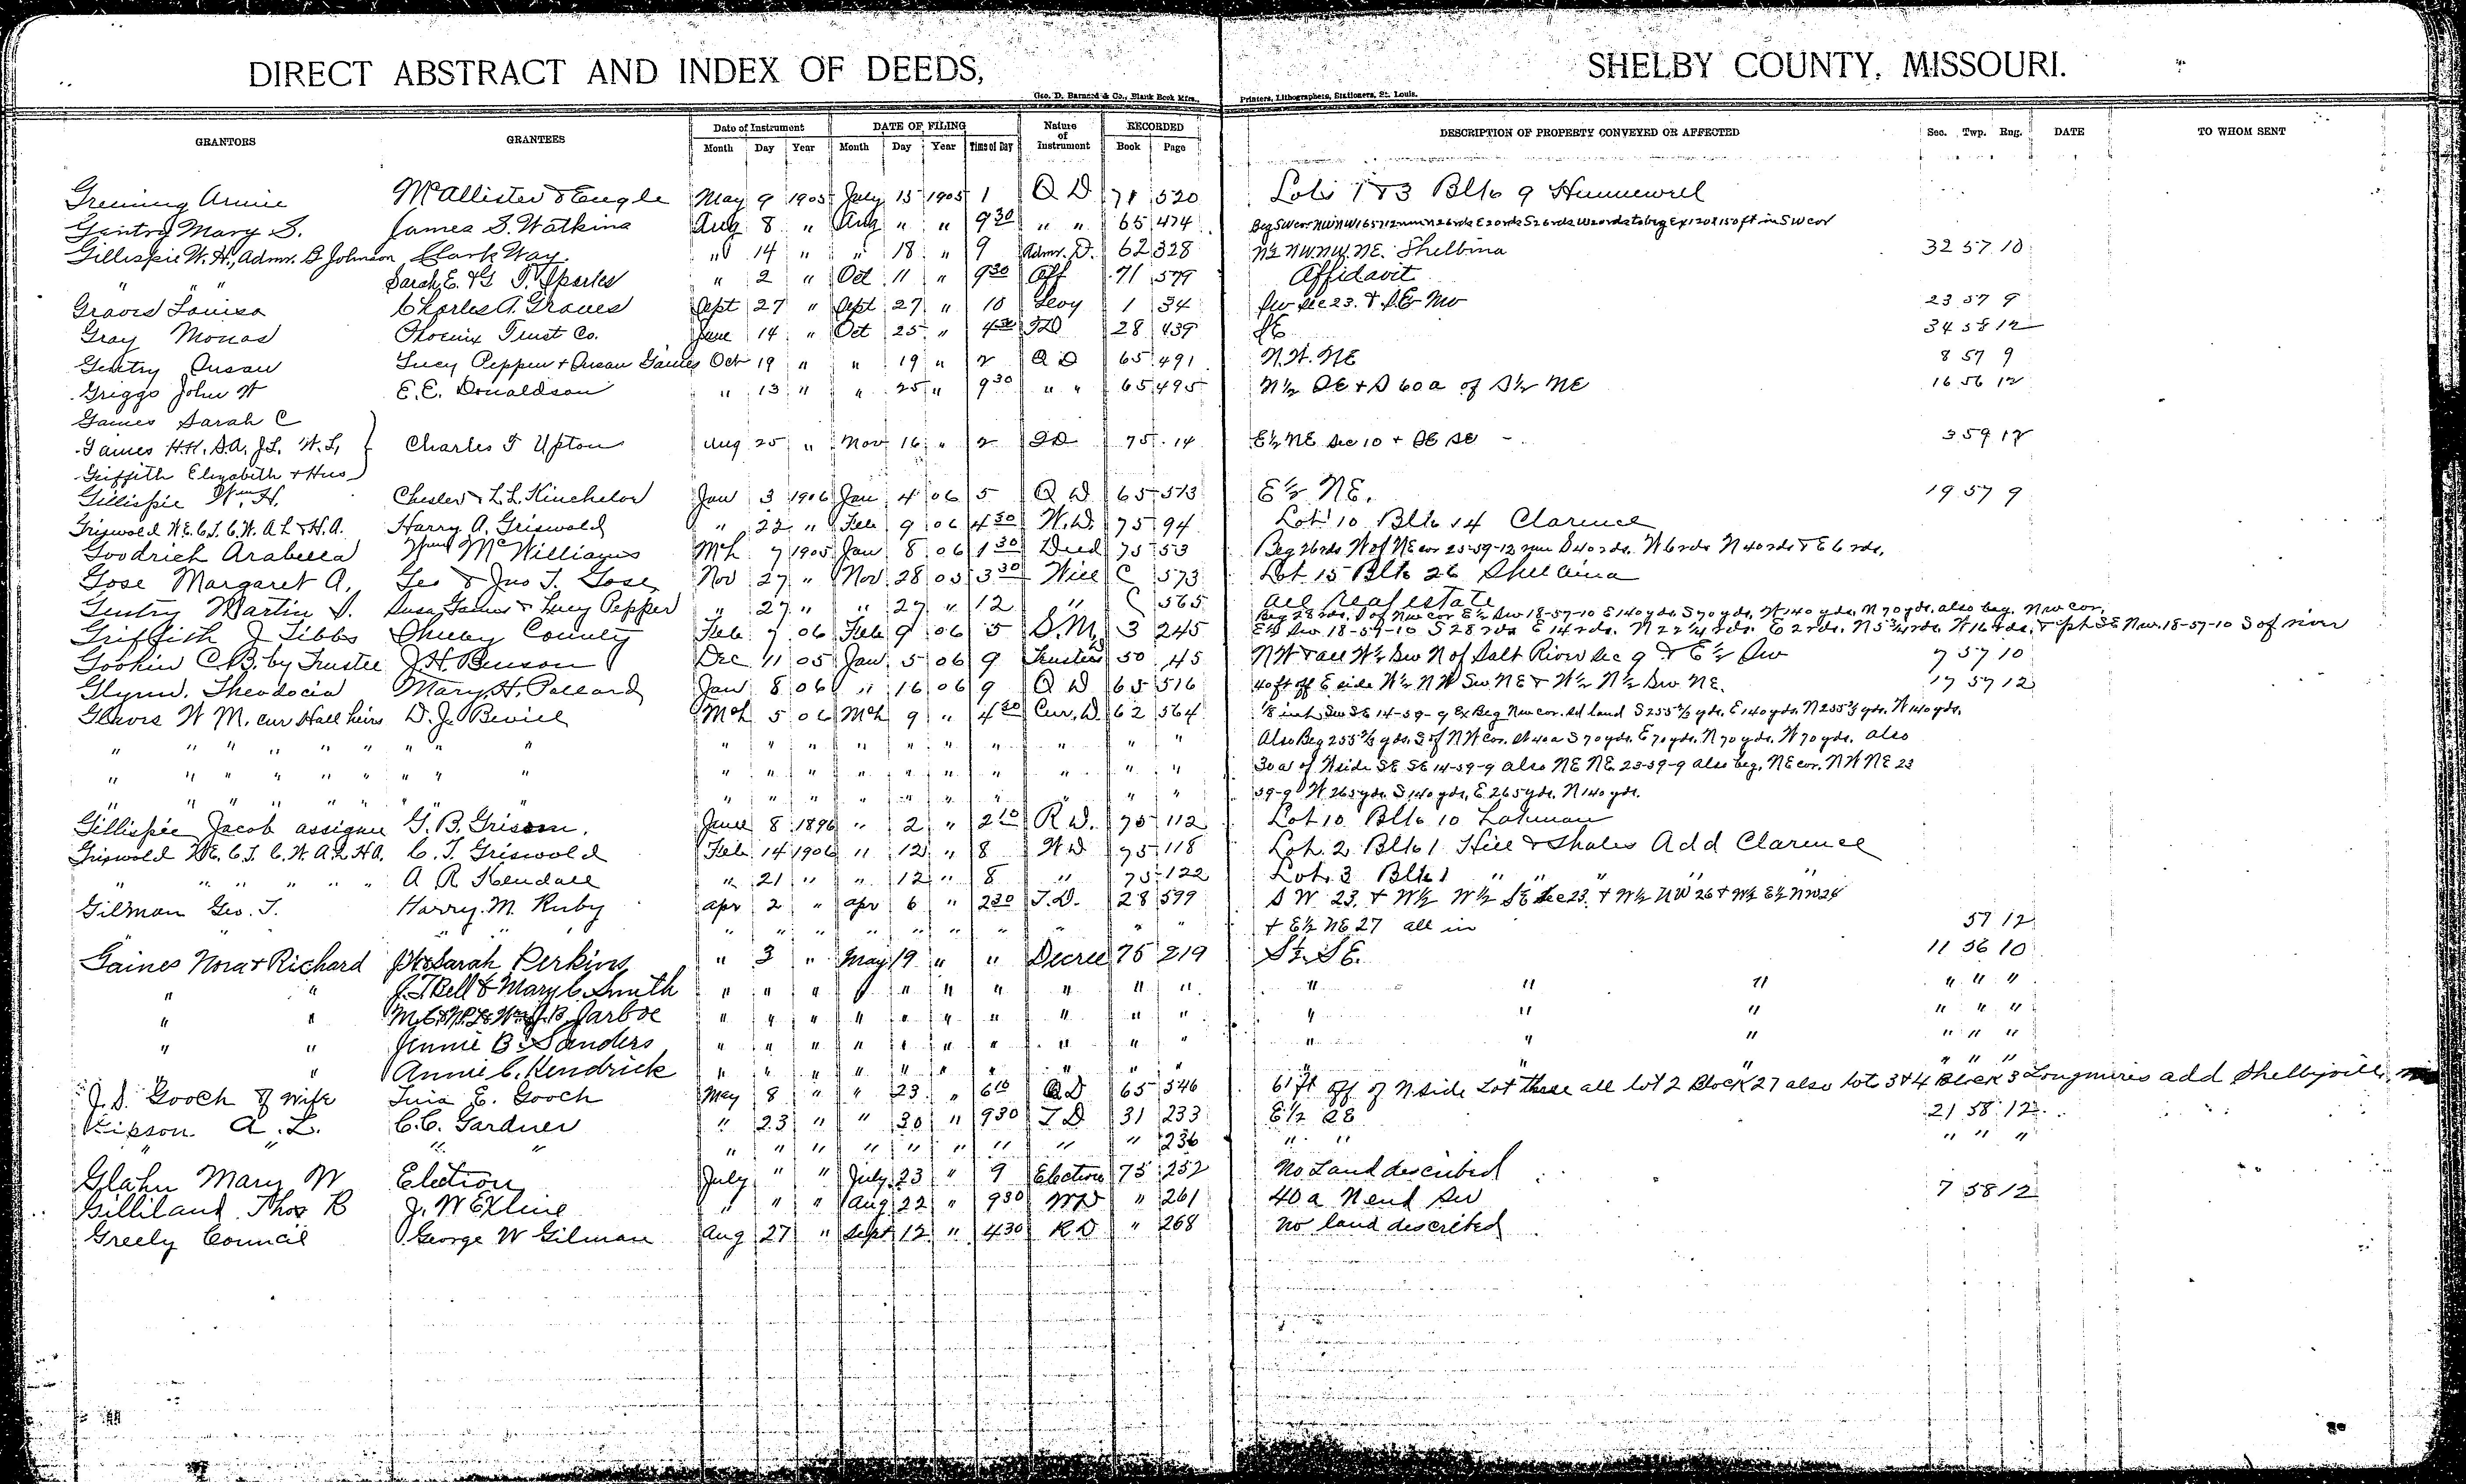 DIRECT ABSTRACT AND INDEX OF DEEDS, SHELBY COUNTY, MISSOURI.
Geo. D. Barnard & Co., Blank Book Mfrs., Printers, Lithographers, Stationers, St. Louis.
GRANTORS GRANTEES Date of Instrument DATE OF FILING Nature of Instrument RECORDED DESCRIPTION OF PROPERTY CONVEYED OR AFFECTED Sec. Twp. Rng. DATE TO WHOM SENT
Month Day Year Month Day Year Time of Day Book Page
Greening Annie McAllister & Engle May 9 1905 July 15 1905 1 Q D 71 520 Lots 1 & 3 Blk 9 Hunnewell
Gentry Mary S. James S. Watkins Aug 8 " Aug " " 9 30 " " 65 474 Beg SW cor NW NW 16 57 12 run N 26 rds E 20 rds S 26 rds W 20 rds to beg Ex 120 x 150 ft in SW cor
Gillispie W. H., Admr. G Johnson Clark Way. " 14 " " 18 " 9 Admr. D. 62 328 N½ NW NW NE. Shelbina 32 57 10
" " Sarah E. & G T. Sparks " 2 " Oct 11 " 9 30 Aff 71 579 Affidavit
Graves Louisa Charles A. Graves Sept 27 " Sept 27 " 10 Levy 1 34 SW Sec 23. & SE NW 23 57 9
Gray Monas Phoenix Trust Co. June 14 " Oct 25 " 4 30 TD 28 439 SE 34 58 12
Gentry Susan Lucy Pepper & Susan Gaines Oct 19 " " 19 " 2 Q D 65 491 N.W. NE 8 57 9
Griggs John W E.E. Donaldson " 13 " " 25 " 9 30 " " 65 495 N½ SE & S 60 a of S½ NE 16 56 12
Gaines Sarah C
Gaines H.H. S.A. J.L. W.L. Charles T Upton Aug 25 " Nov 16 " 2 75 14 E½ NE Sec 10 + SE SE 3 59 12
Griffith Elizabeth & Hus
Gillispie Wm H. Chester & L.L. Kincheloe Jan 3 1906 Jan 4 06 5 Q D 65 513 E½ NE. 19 57 9
Griswold W.E. C.T. C.W. A L & H.A. Harry A. Griswold " 22 " Feb 9 06 4 30 W.D. 75 94 Lot 10 Blk 14 Clarence
Goodrich Arabella Wm McWilliams Mch 7 1905 Jan 8 06 1 30 Deed 75 53 Beg 26 rds W of NE cor 25-59-12 run S 40 rds. W 6 rds N 40 rds & E 6 rds.
Gose Margaret A. Geo & Jno T. Gose Nov 27 " Nov 28 05 3 30 Will C 573 Lot 15 Blk 26 Shelbina
Gentry Martin S. Susan Gaines & Lucy Pepper " 27 " " 27 " 12 " C 565 All real estate
Beg 28 rds. S of NW cor E½ SW 18-57-10 E 140 yds. S 70 yds. W 140 yds. N 70 yds. also beg. NW cor.
Griffith J Tibbs Shelby County Feb 7 06 Feb 9 06 5 S.M. 3 245 E½ SW 18-57-10 S 28 rds E 14 rds. N 22¼ rds. E 2 rds. N 5¾ rds. W 16 rds. & pt SE NW. 18-57-10 S of river
Gookin C.B. by Trustee J.H. Benson Dec 11 05 Jan 5 06 9 Trustees 50 45 NW & all W½ SW N of Salt River Sec 9 & E½ SW 7 57 10
Glynn. Theodocia Mary H. Pollard Jan 8 06 " 16 06 9 Q D 65 516 40 ft off E side W½ NW SW NE & W½ N½ SW NE. 17 57 12
W M. cur Hall heirs D. J. Beville Mch 5 06 Mch 9 " 4 30 Cur. D. 62 564 1/8 int SW SE 14-59-9 Ex Beg NW cor. Sd land S 255⅔ yds. E 140 yds. N 255⅔ yds. W 140 yds.
" " " " " " " " " " " " " " " " " " " Also Beg 255⅔ yds. S of NW cor. Sd 40a S 70 yds. E 70 yds. N 70 yds. W 70 yds. also
" " " " " " " " " " " " " " " " " " " 30 a of W side SE SE 14-59-9 also NE NE. 23-59-9 also beg. NE cor. NW NE 23
" " " " " " " " " " " " " " " " " " " 59-9 W 265 yds. S 140 yds. E 265 yds. N 140 yds.
Gillispie Jacob assignee G. B. Grissom. June 8 1896 " 2 " 2 10 R D. 75 112 Lot 10 Blk 10 Lakenan
Griswold W.E. C.T. C.W. A.L. H.A. C. T. Griswold Feb 14 1906 " 12 " 8 W D 75 118 Lot 2 Blk 1 Hill & Shales Add Clarence
" " " " " " A R Kendall " 21 " " 12 " 8 " 75 122 Lot 3 Blk 1 " " " "
Gilman Geo. T. Harry. M. Ruby Apr 2 " Apr 6 " 2 30 T.D. 28 599 S W 23. & W½ W½ SE Sec 23. & W½ NW 26 & W½ E½ NW 26
" " " " " " " " " " " " + E½ NE 27 all in 57 12
Gaines Nora & Richard Sarah Perkins " 3 " May 19 " " Decree 75 219 S½ SE. 11 56 10
" " J. T. Bell & Mary C. Smith " " " " " " " " " " " " " " " "
" " Jarboe " " " " " " " " " " " " " " " "
" " Jennie B. Sanders " " " " " " " " " " " " " " " "
" " Annie C. Kendrick " " " " " " " " " " " " " " " "
J. D. Gooch & wife E. Gooch May 8 " " 23 " 6 10 QD 65 546 61 ft off of N side Lot three all lot 2 Block 27 also lots 3 & 4 Block 3 Longmires add Shelbyville
Gipson. A. L. C.C. Gardner " 23 " " 30 " 9 30 T D 31 233 E½ SE 21 58 12
" " " " " " " " " " " " " 236 " " " " "
Glahn Mary W Election July " " July 23 " 9 Election 75 252 No Land described
Gilliland Thos B J. W Exline " " " Aug 22 " 9 30 WD " 261 40 a N end SW 7 58 12
Greely Council George W Gilman Aug 27 " Sept 12 " 4 30 R D " 268 no land described